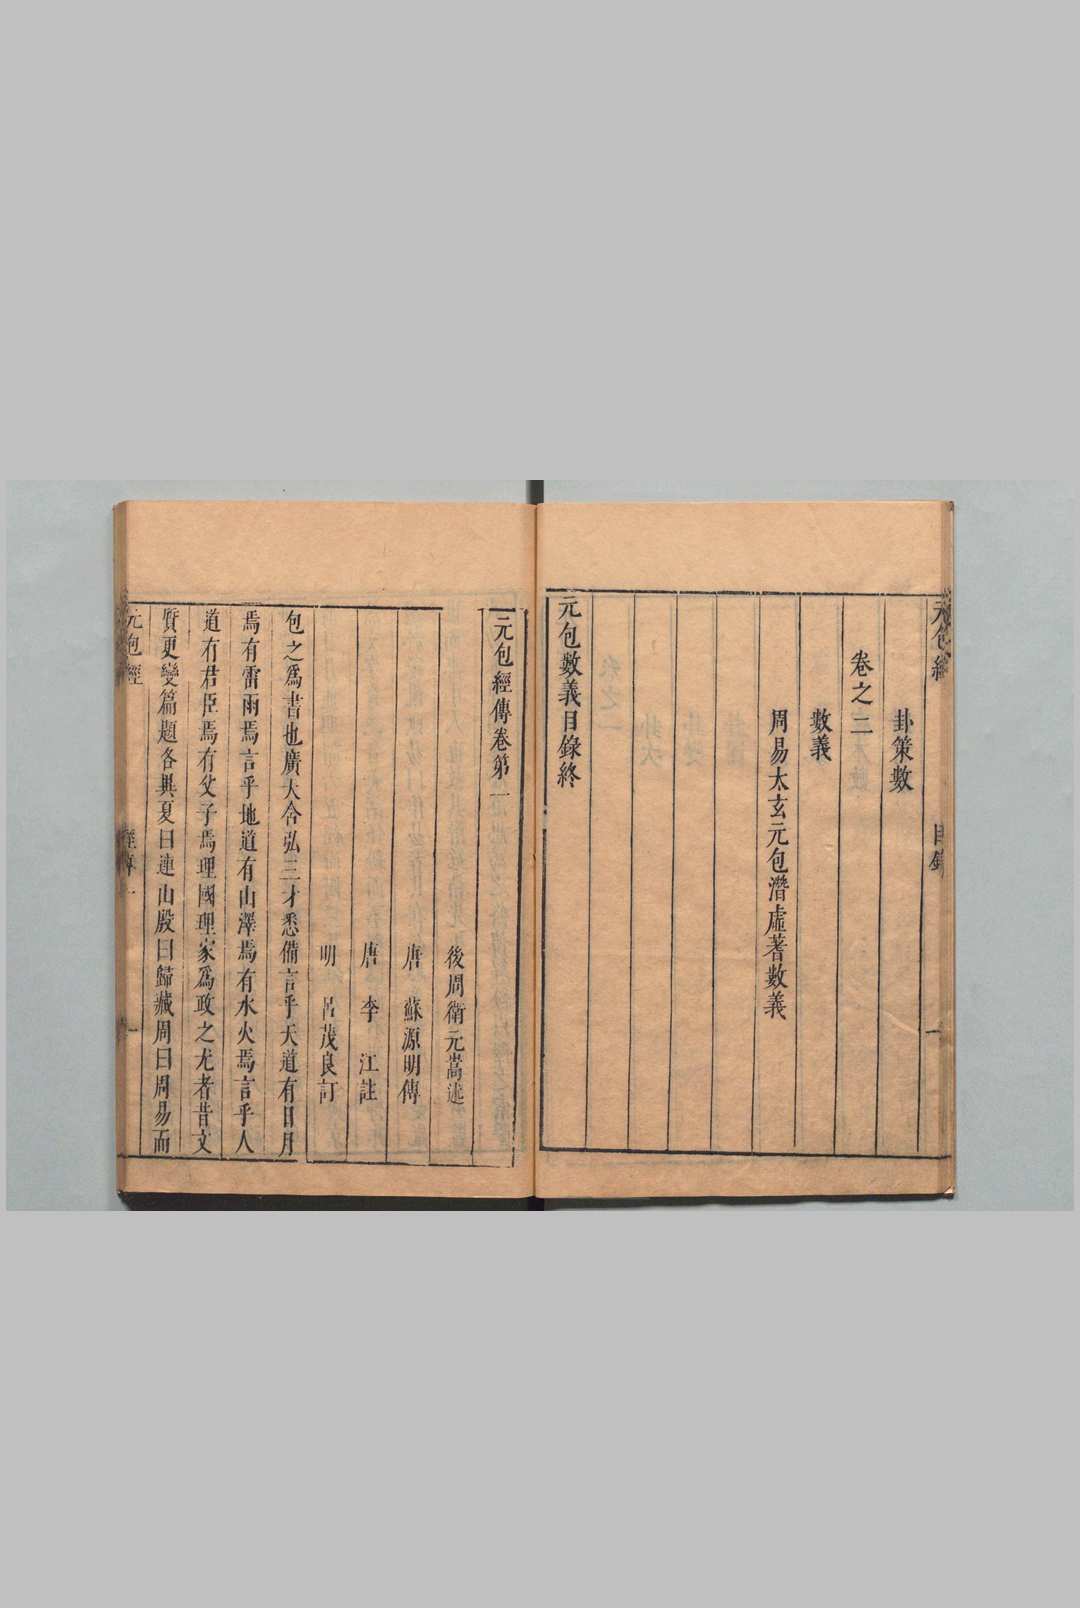 元包經
目錄
一
卦策數
卷之二
數義
周易太玄元包潛虛蓍數義
元包數義目錄終
元包經傳卷第一
後周衛元嵩述
唐 蘇源明傳
唐 李 江註
明 呂茂良訂
包之爲書也廣大含弘三才悉備言乎天道有日月
焉有雷雨焉言乎地道有山澤焉有水火焉言乎人
道有君臣焉有父子焉理國理家爲政之尤者昔文
質更變篇題各異夏曰連山殷曰歸藏周曰周易而
元包經
經傳一
一